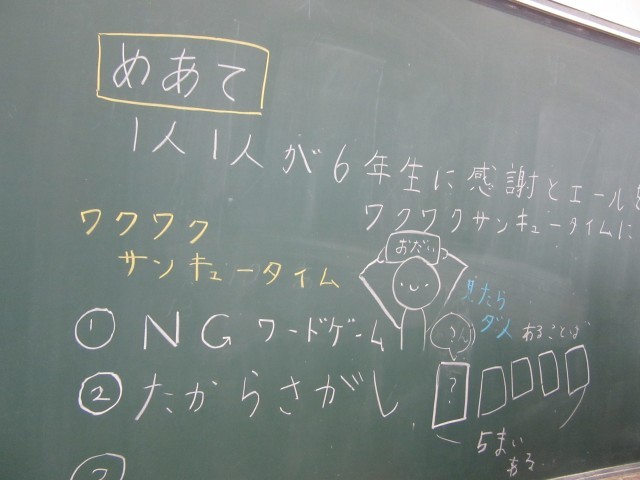 めあて
1人1人が6年生に感謝とエールを
ワクワクサンキュータイムに
ワクワク
サンキュータイム
おだい
① NGワードゲーム
見たら
ダメ
あることば
?
② たからさがし
?
5まい
ある